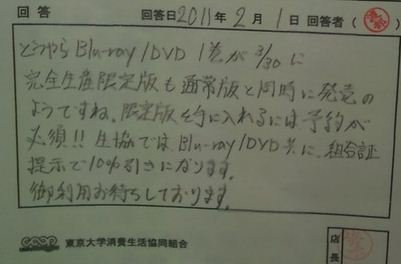 回答 回答日2011年2月1日 回答者( )
どうやらBlu-ray/DVD 1巻が3/30に
完全生産限定版も通常版と同時に発売の
ようですね。限定版を手に入れるには予約が
必須!!生協では、Blu-ray/DVD共に、組合証
提示で10%引きになります。
御利用お待ちしております。
東京大学消費生活協同組合
店長